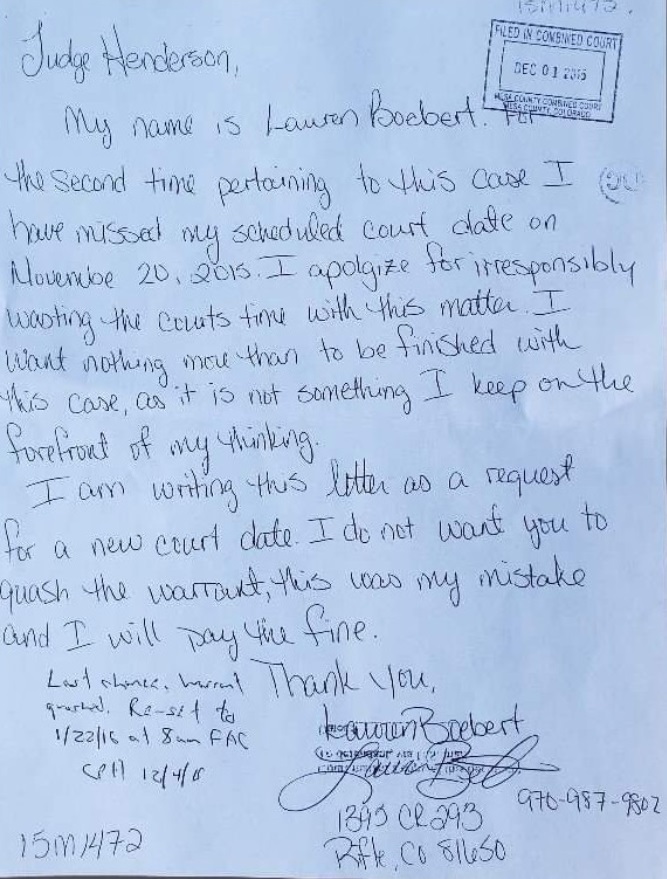 15M1472.
FILED IN COMBINED COURT
DEC 01 2015
MESA COUNTY COMBINED COURT
MESA COUNTY, COLORADO
Judge Henderson,
My name is Lauren Boebert. For
the second time pertaining to this case I
have missed my scheduled court date on
Novembe 20, 2015. I apolgize for irresponsibly
wasting the courts time with this matter. I
want nothing more than to be finished with
this case, as it is not something I keep on the
forefront of my thinking.
I am writing this letter as a request
for a new court date. I do not want you to
quash the warrant, this was my mistake
and I will pay the fine.
Thank You,
Last chance. Warrant
quashed. Re-set to
1/22/16 at 8am FAC
CPH 12/4/15
Lauren Boebert
Lauren Boebert
1395 CR 293
Rifle, CO 81650
970-987-9802
15M1472